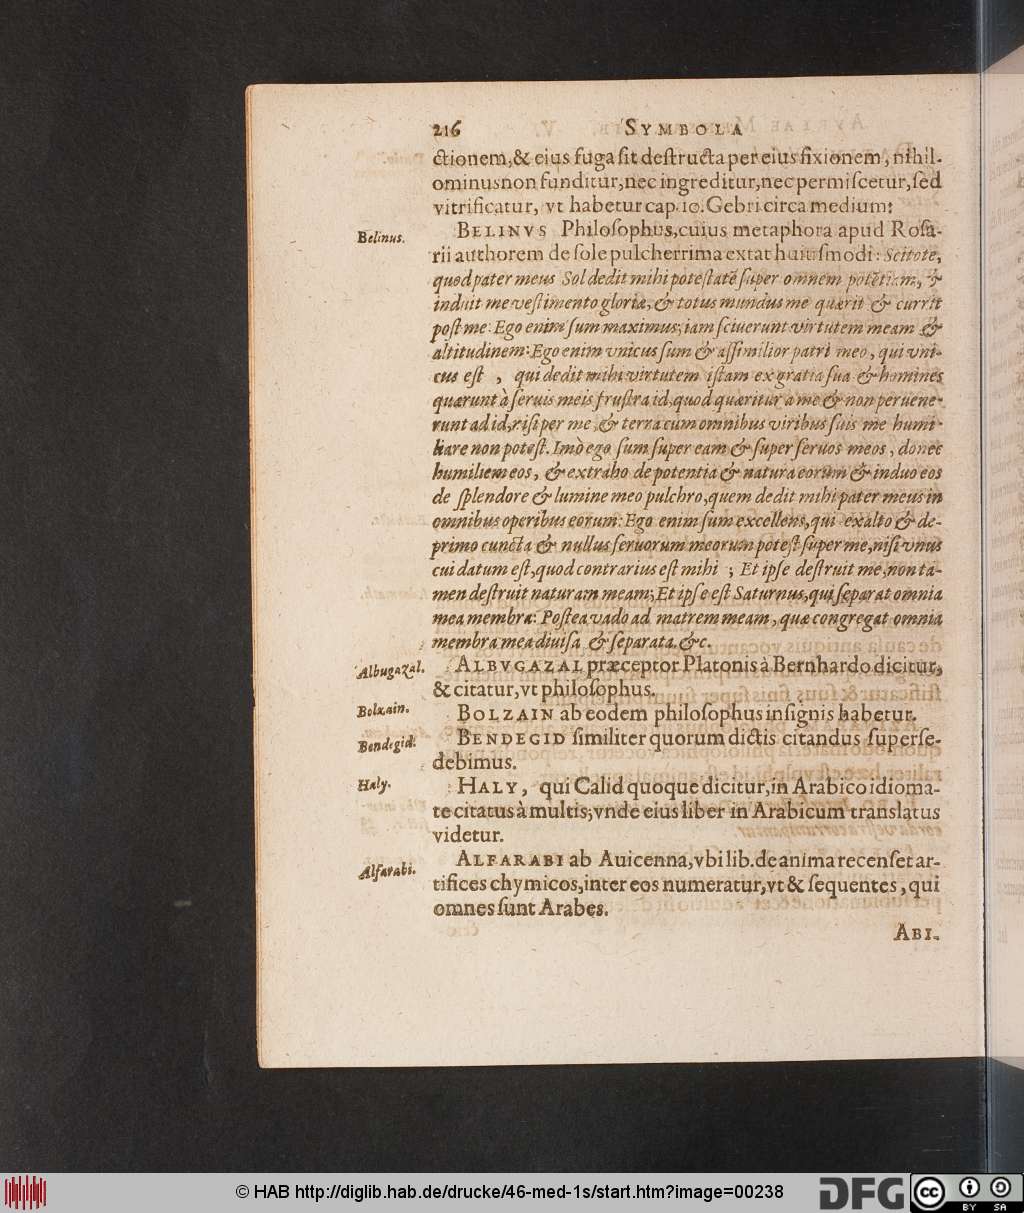 216 SYMBOLA
ctionem,& eius fuga sit destructa per eius fixionem, nihil-
ominus non funditur, nec ingreditur, nec permiscetur, sed
vitrificatur, vt habetur cap. 10. Gebri circa medium:
Belinus.
BELINVS Philosophus, cuius metaphora apud Rosa-
rii authorem de sole pulcherrima extat huiusmodi: Scitote,
quod pater meus Sol dedit mihi potestatẽ super omnem potẽtiam, &
induit me vestimento gloriæ, & totus mundus me quærit & currit
post me: Ego enim sum maximus; iam sciuerunt virtutem meam &
altitudinem: Ego enim vnicus sum & assimilior patri meo, qui vni-
cus est , qui dedit mihi virtutem istam ex gratia sua & homines
quærunt à seruis meis frustra id, quod quæritur a me & non peruene-
runt ad id, nisi per me, & terra cum omnibus viribus suis me humi-
liare non potest. Imò ego sum super eam & super seruos meos, donec
humiliem eos, & extraho de potentia & natura eorum & induo eos
de splendore & lumine meo pulchro, quem dedit mihi pater meus in
omnibus operibus eorum: Ego enim sum excellens, qui exalto & de-
primo cuncta & nullus seruorum meorum potest super me, nisi vnus
cui datum est, quod contrarius est mihi ; Et ipse destruit me, non ta-
men destruit naturam meam; Et ipse est Saturnus, qui separat omnia
mea membra: Postea vado ad matrem meam, quæ congregat omnia
membra mea diuisa & separata. &c.
Albugazal.
ALBVGAZAL præceptor Platonis à Bernhardo dicitur,
& citatur, vt philosophus.
Bolzain.
BOLZAIN ab eodem philosophus insignis habetur.
Bendegid.
BENDEGID similiter quorum dictis citandus superse-
debimus.
Haly.
HALY, qui Calid quoque dicitur, in Arabico idioma-
te citatus à multis; vnde eius liber in Arabicum translatus
videtur.
Alfarabi.
ALFARABI ab Auicenna, vbi lib. de anima recenset ar-
tifices chymicos, inter eos numeratur, vt & sequentes, qui
omnes sunt Arabes.
ABI.
© HAB http://diglib.hab.de/drucke/46-med-1s/start.htm?image=00238
DFG
cc BY SA